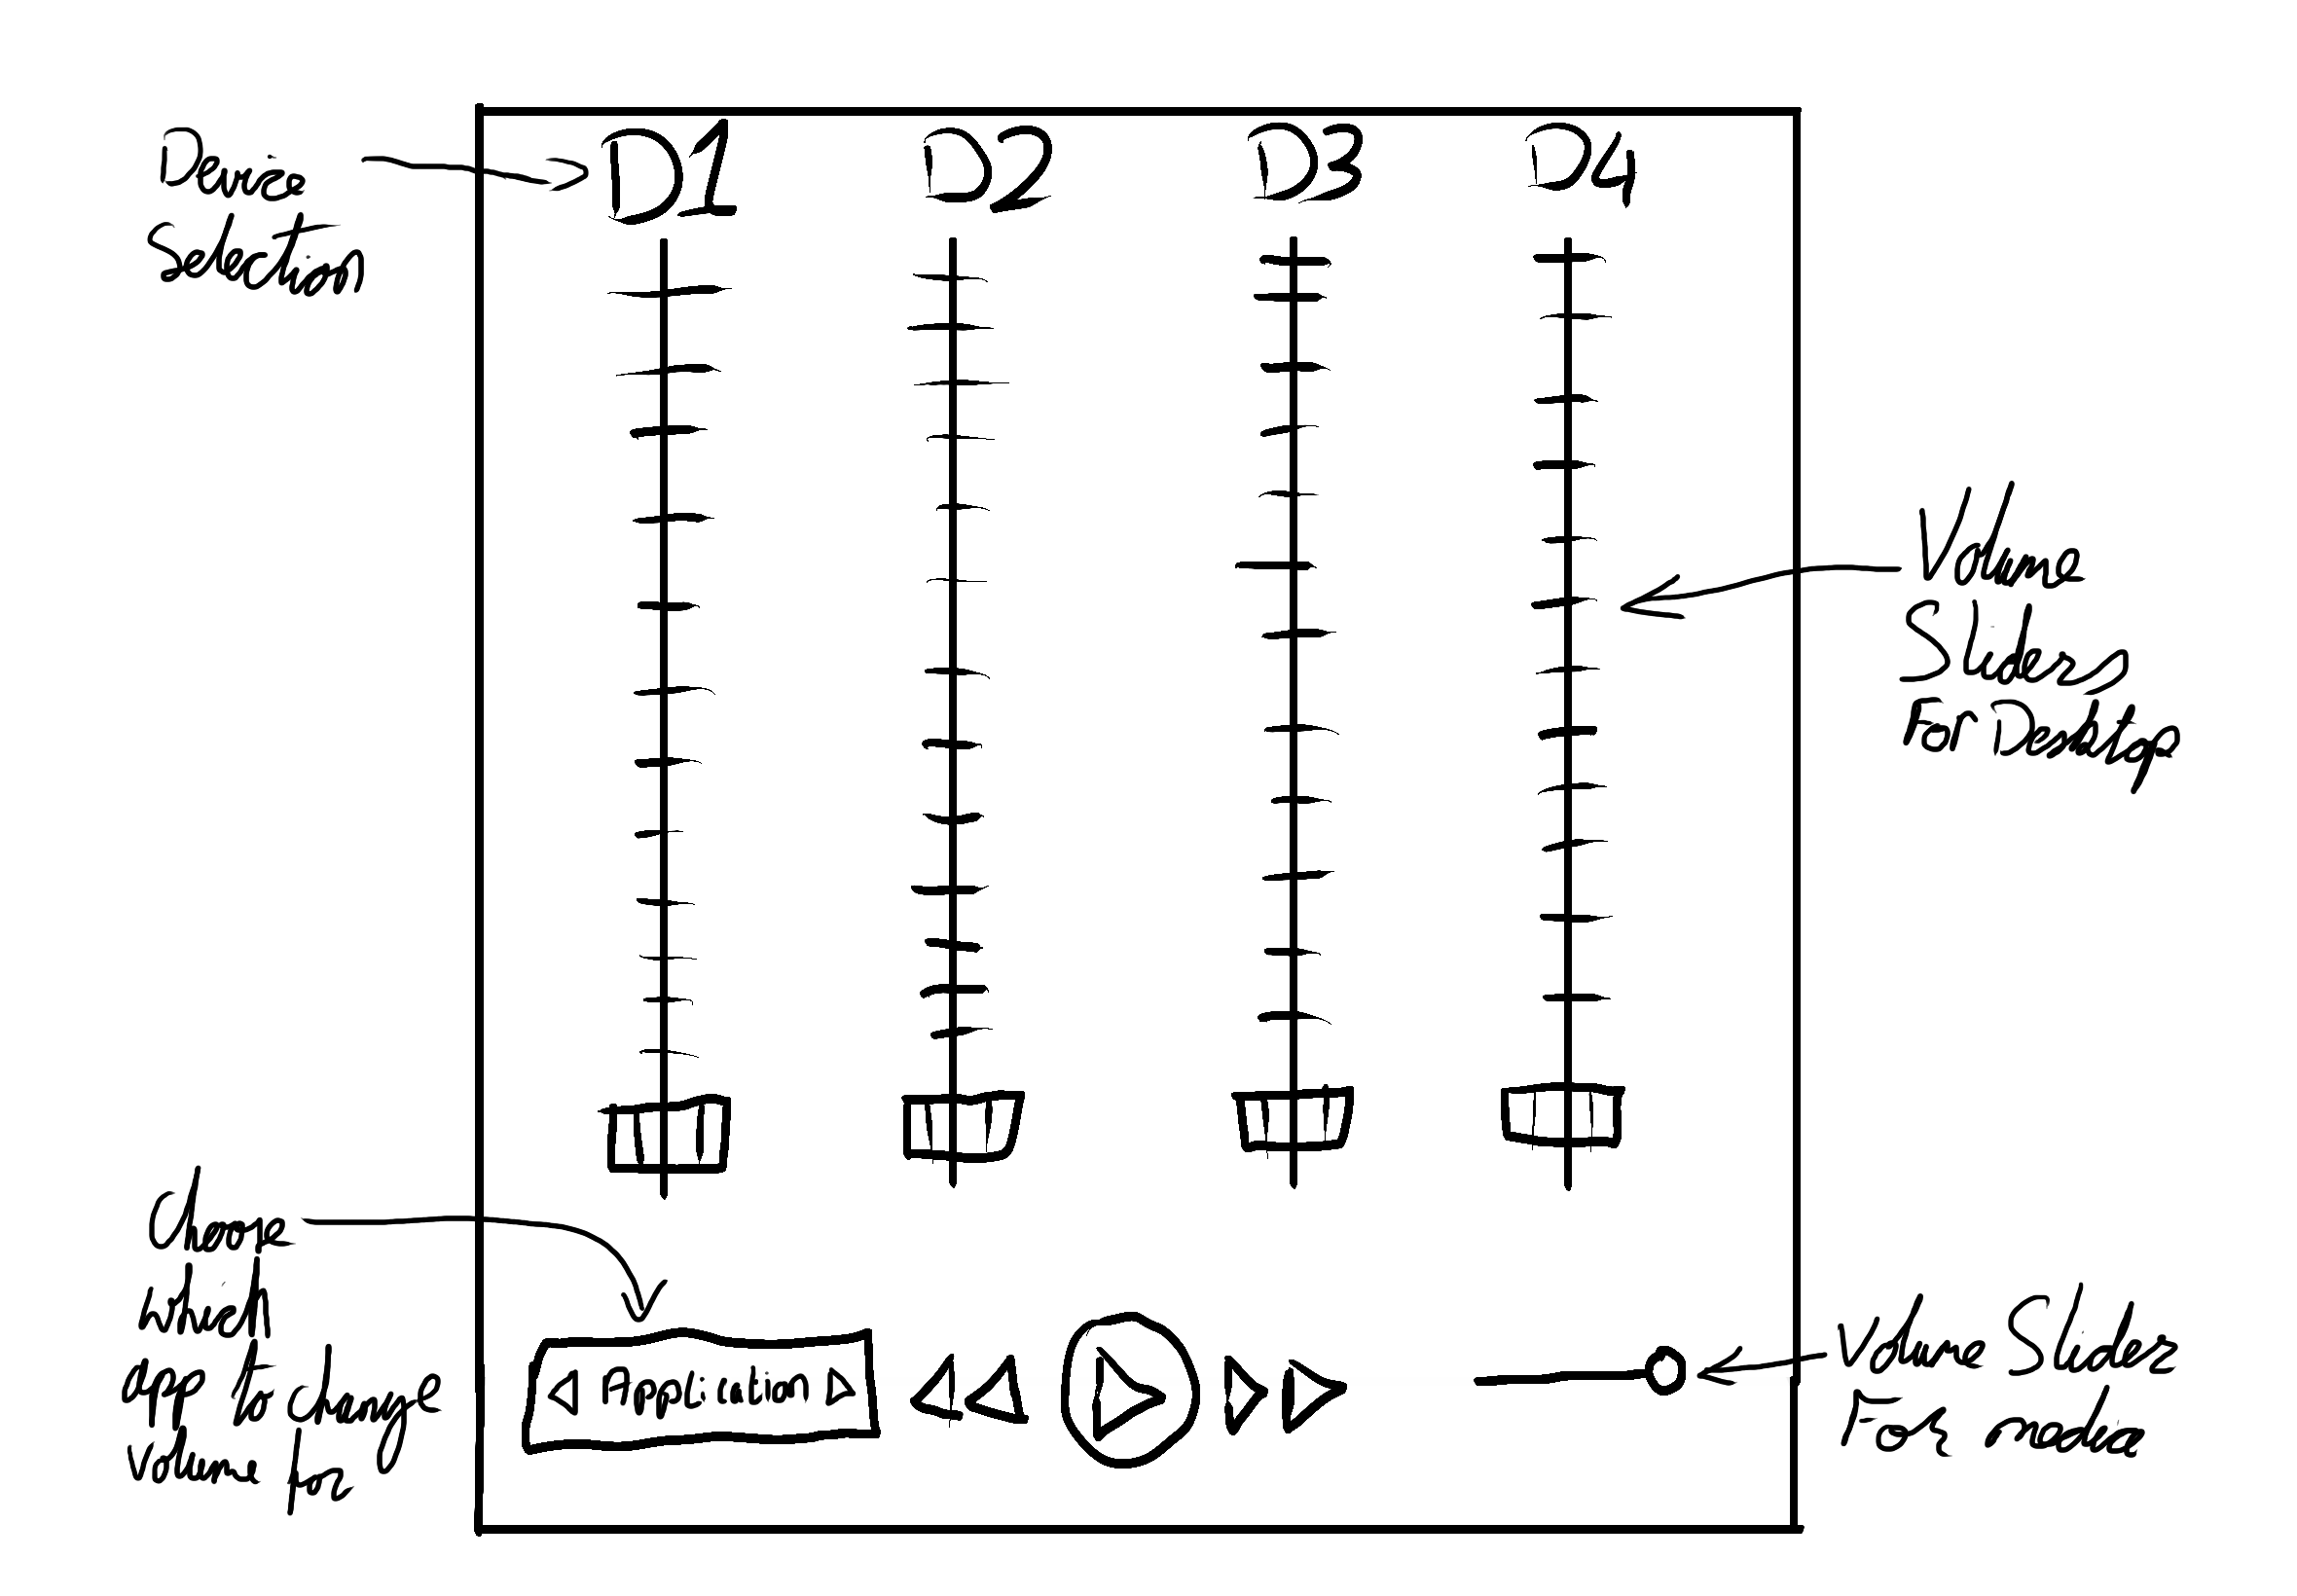 Device
Selection
D1 D2 D3 D4
Volume
Sliders
For Desktop
Choose
which
app to change
volume for
Application
Volume Slider
For media